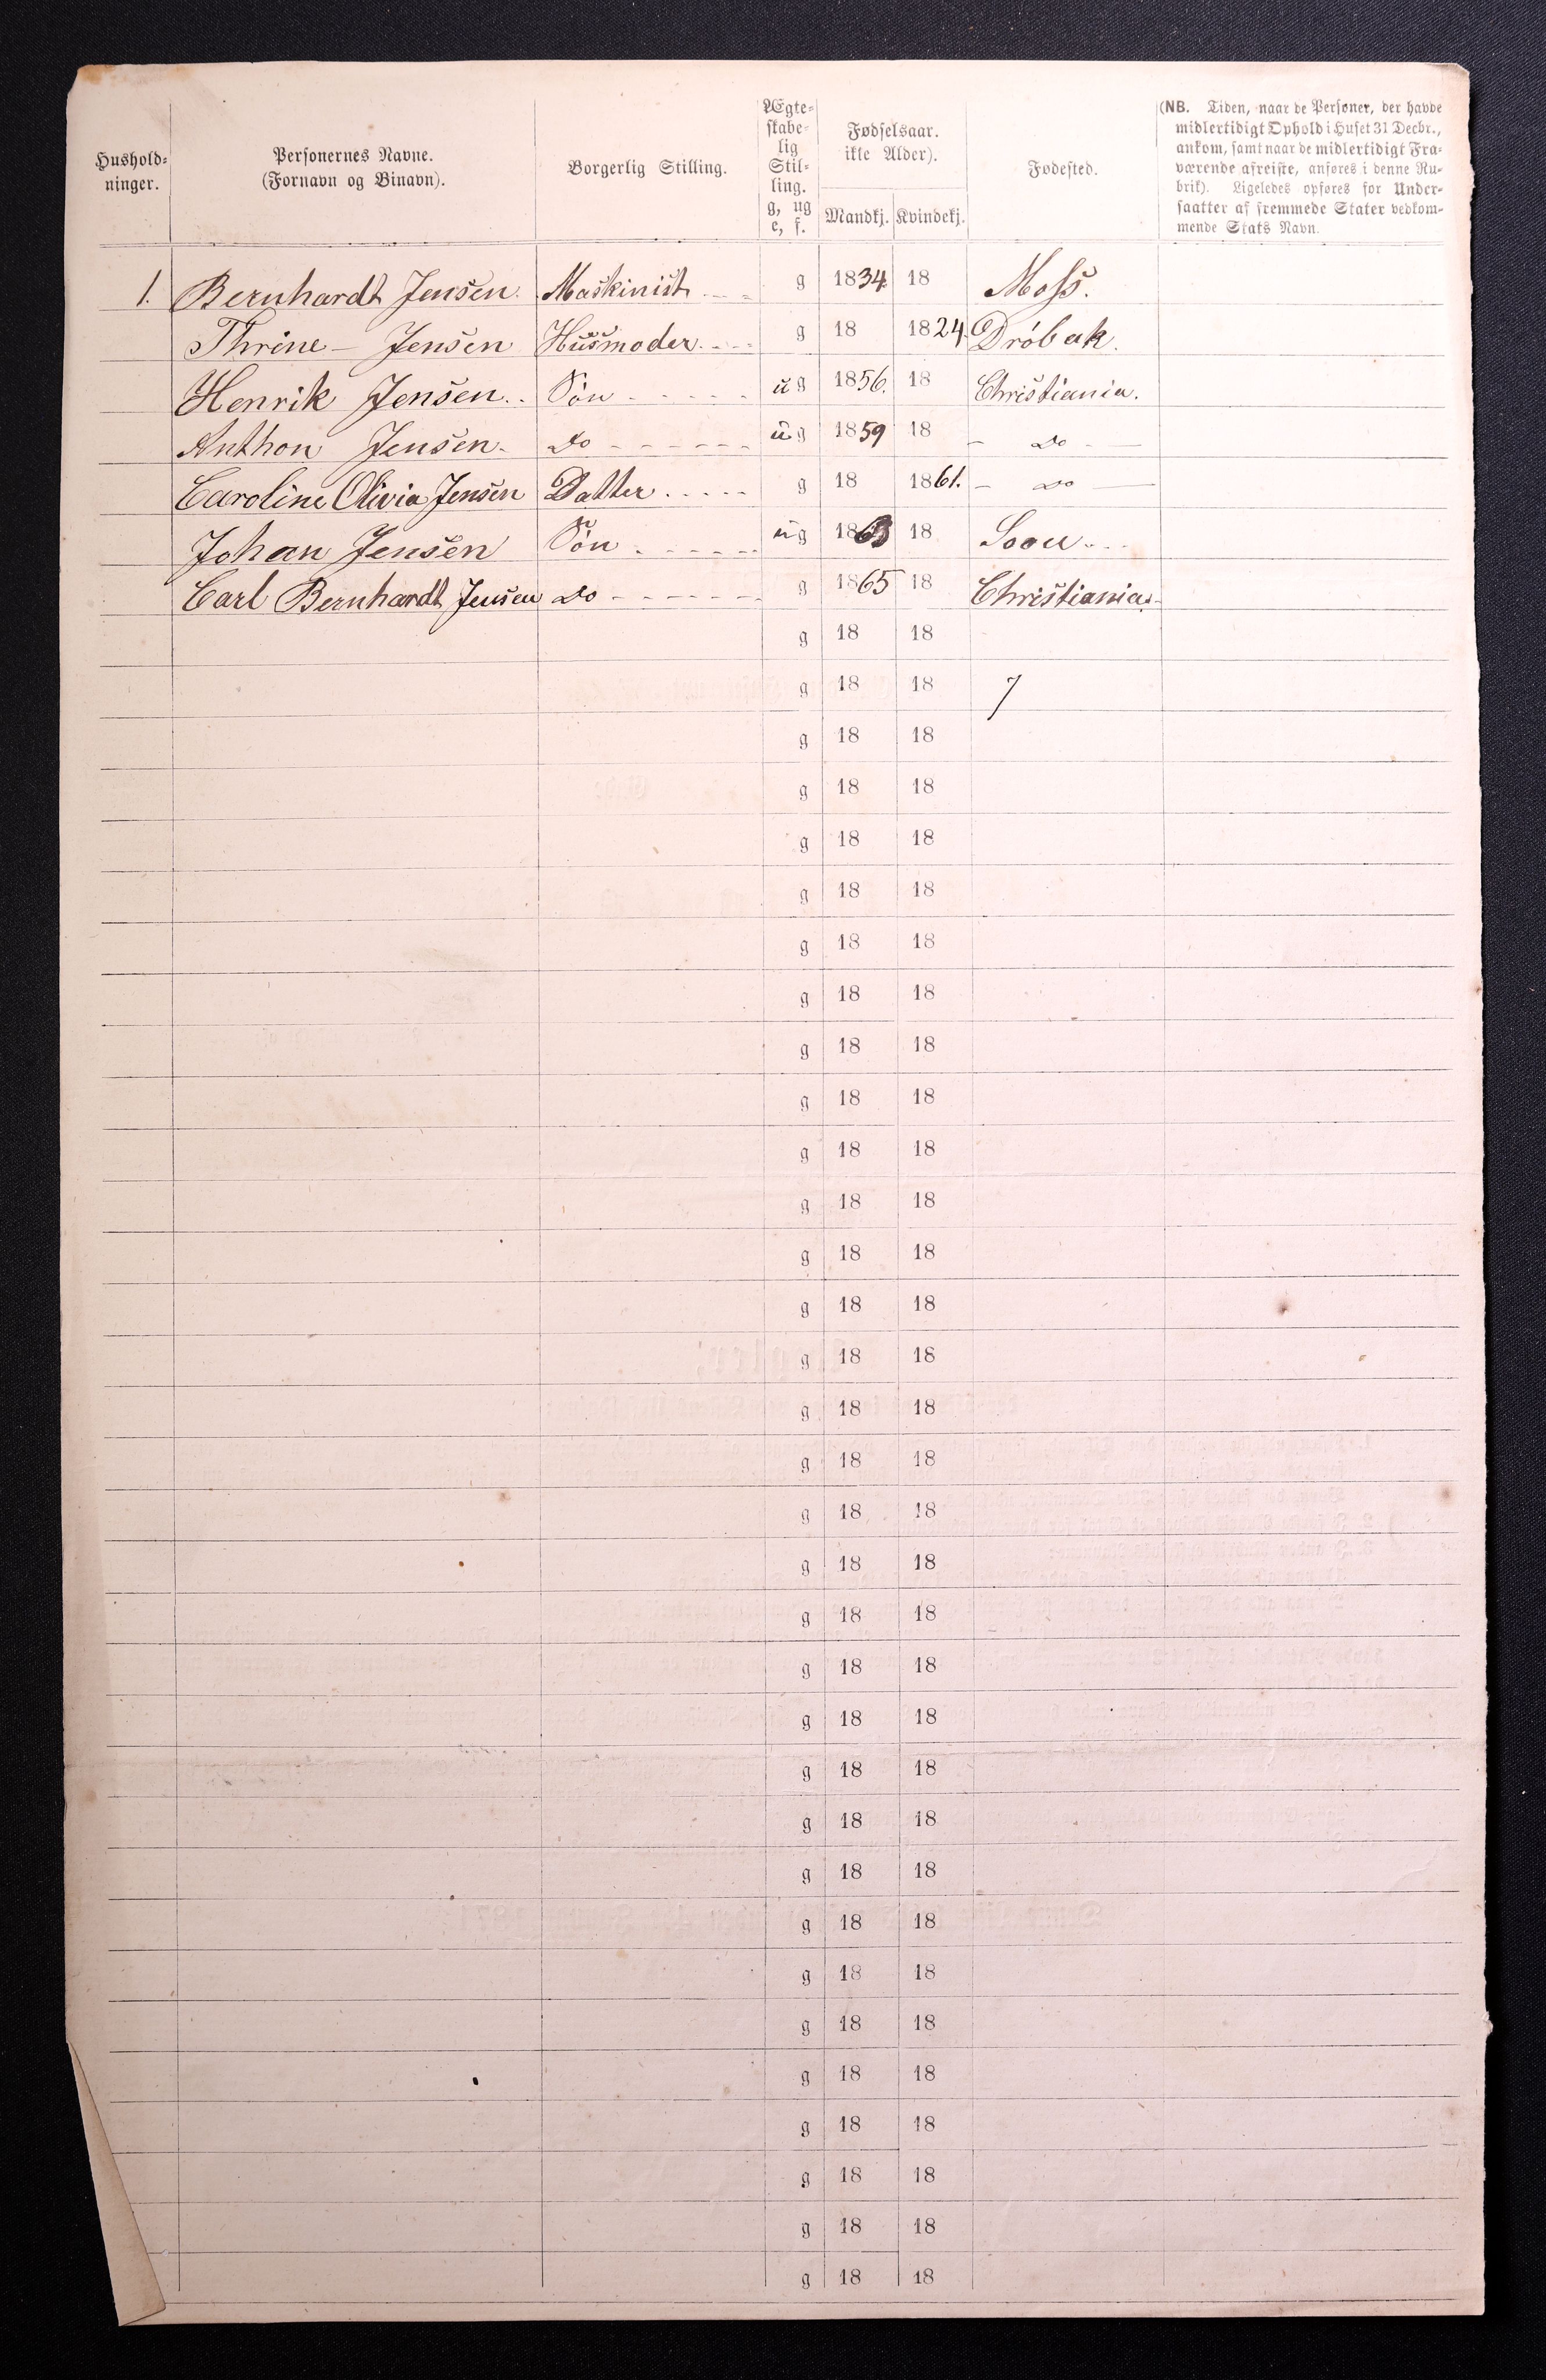 Hushold-
ninger.
Personernes Navne.
(Fornavn og Binavn).
Borgerlig Stilling.
Ægte-
skabe-
lig
Stil-
ling.
g, ug
e, f.
Fødselsaar.
ikke Alder).
Mandkj. Kvindekj.
Fødested.
(NB. Tiden, naar de Personer, der havde
midlertidigt Ophold i Huset 31 Decbr.,
ankom, samt naar de midlertidigt Fra-
værende afreiste, anføres i denne Ru-
brik). Ligeledes opføres for Under-
saatter af fremmede Stater vedkom-
mende Stats Navn.
1. Bernhardt Jensen. Maskinist g 1834 18 Moss.
Thrine - Jensen Husmoder. g 18 1824 Dröbak.
Henrik Jensen. Sön ug 1856. 18 Christiania.
Anthon Jensen. Do ug 1859 18 - Do -
Caroline Olivia Jensen Datter g 18 1861. - Do -
Johan Jensen Sön ug 1863 18
Carl Bernhardt Jensen Do g 1865 18 Christiania.
g 18 18
g 18 18 7
g 18 18
g 18 18
g 18 18
g 18 18
g 18 18
g 18 18
g 18 18
g 18 18
g 18 18
g 18 18
g 18 18
g 18 18
g 18 18
g 18 18
g 18 18
g 18 18
g 18 18
g 18 18
g 18 18
g 18 18
g 18 18
g 18 18
g 18 18
g 18 18
g 18 18
g 18 18
g 18 18
g 18 18
g 18 18
g 18 18
g 18 18